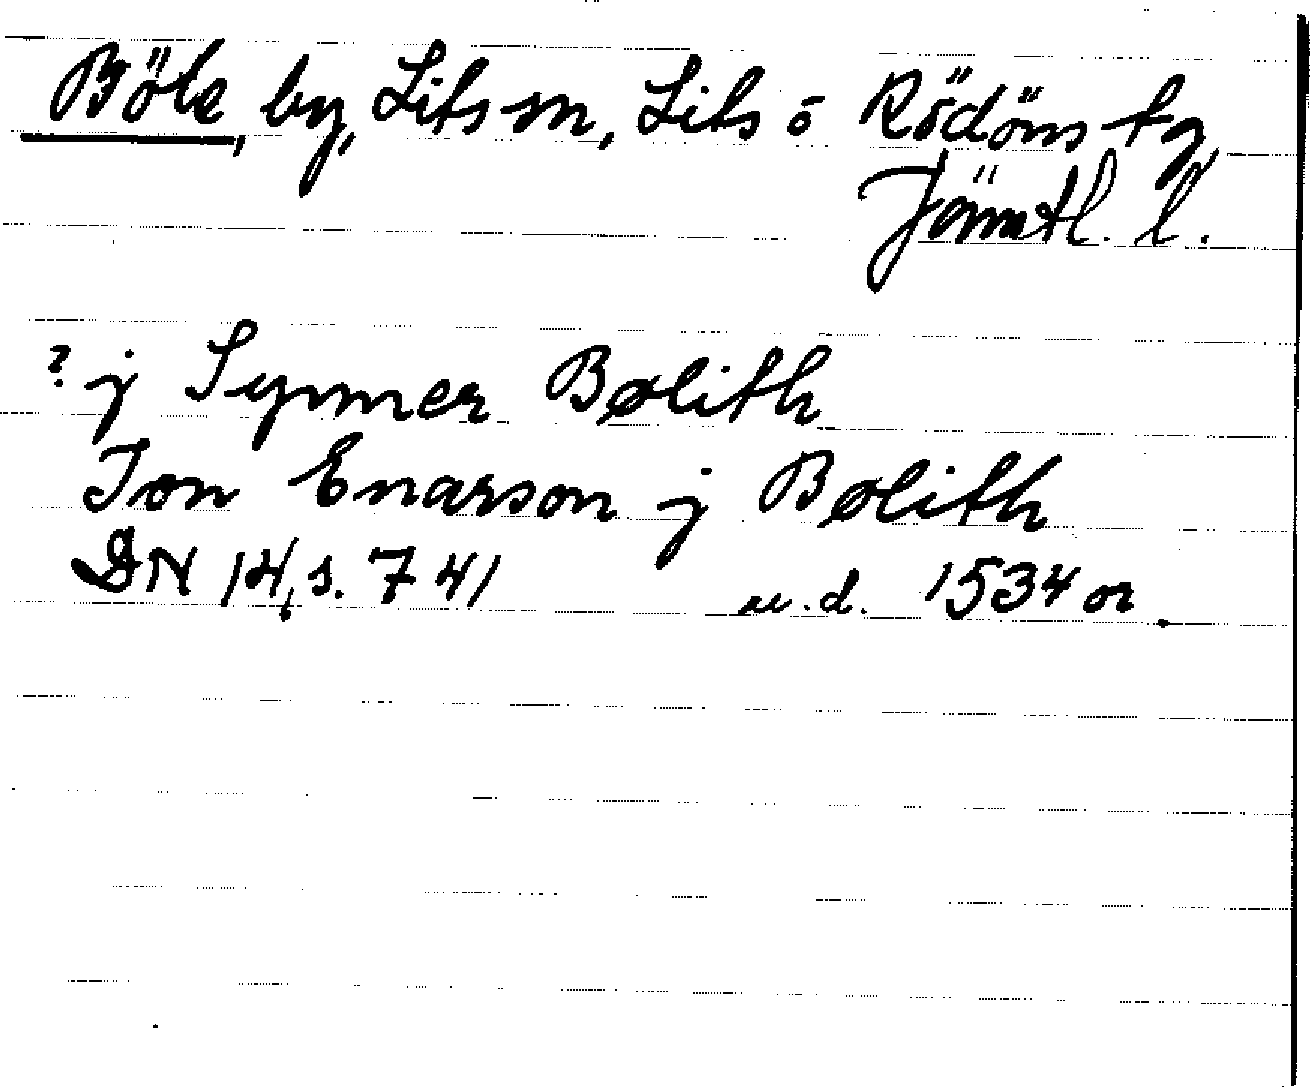 Böle, by, Lits sn, Lits o Rödöns tg,
Jämtl. l.
? j Synner Bølith
Jon Enarson j Bølith
DN 14, s. 741 u.d. 1534 or.